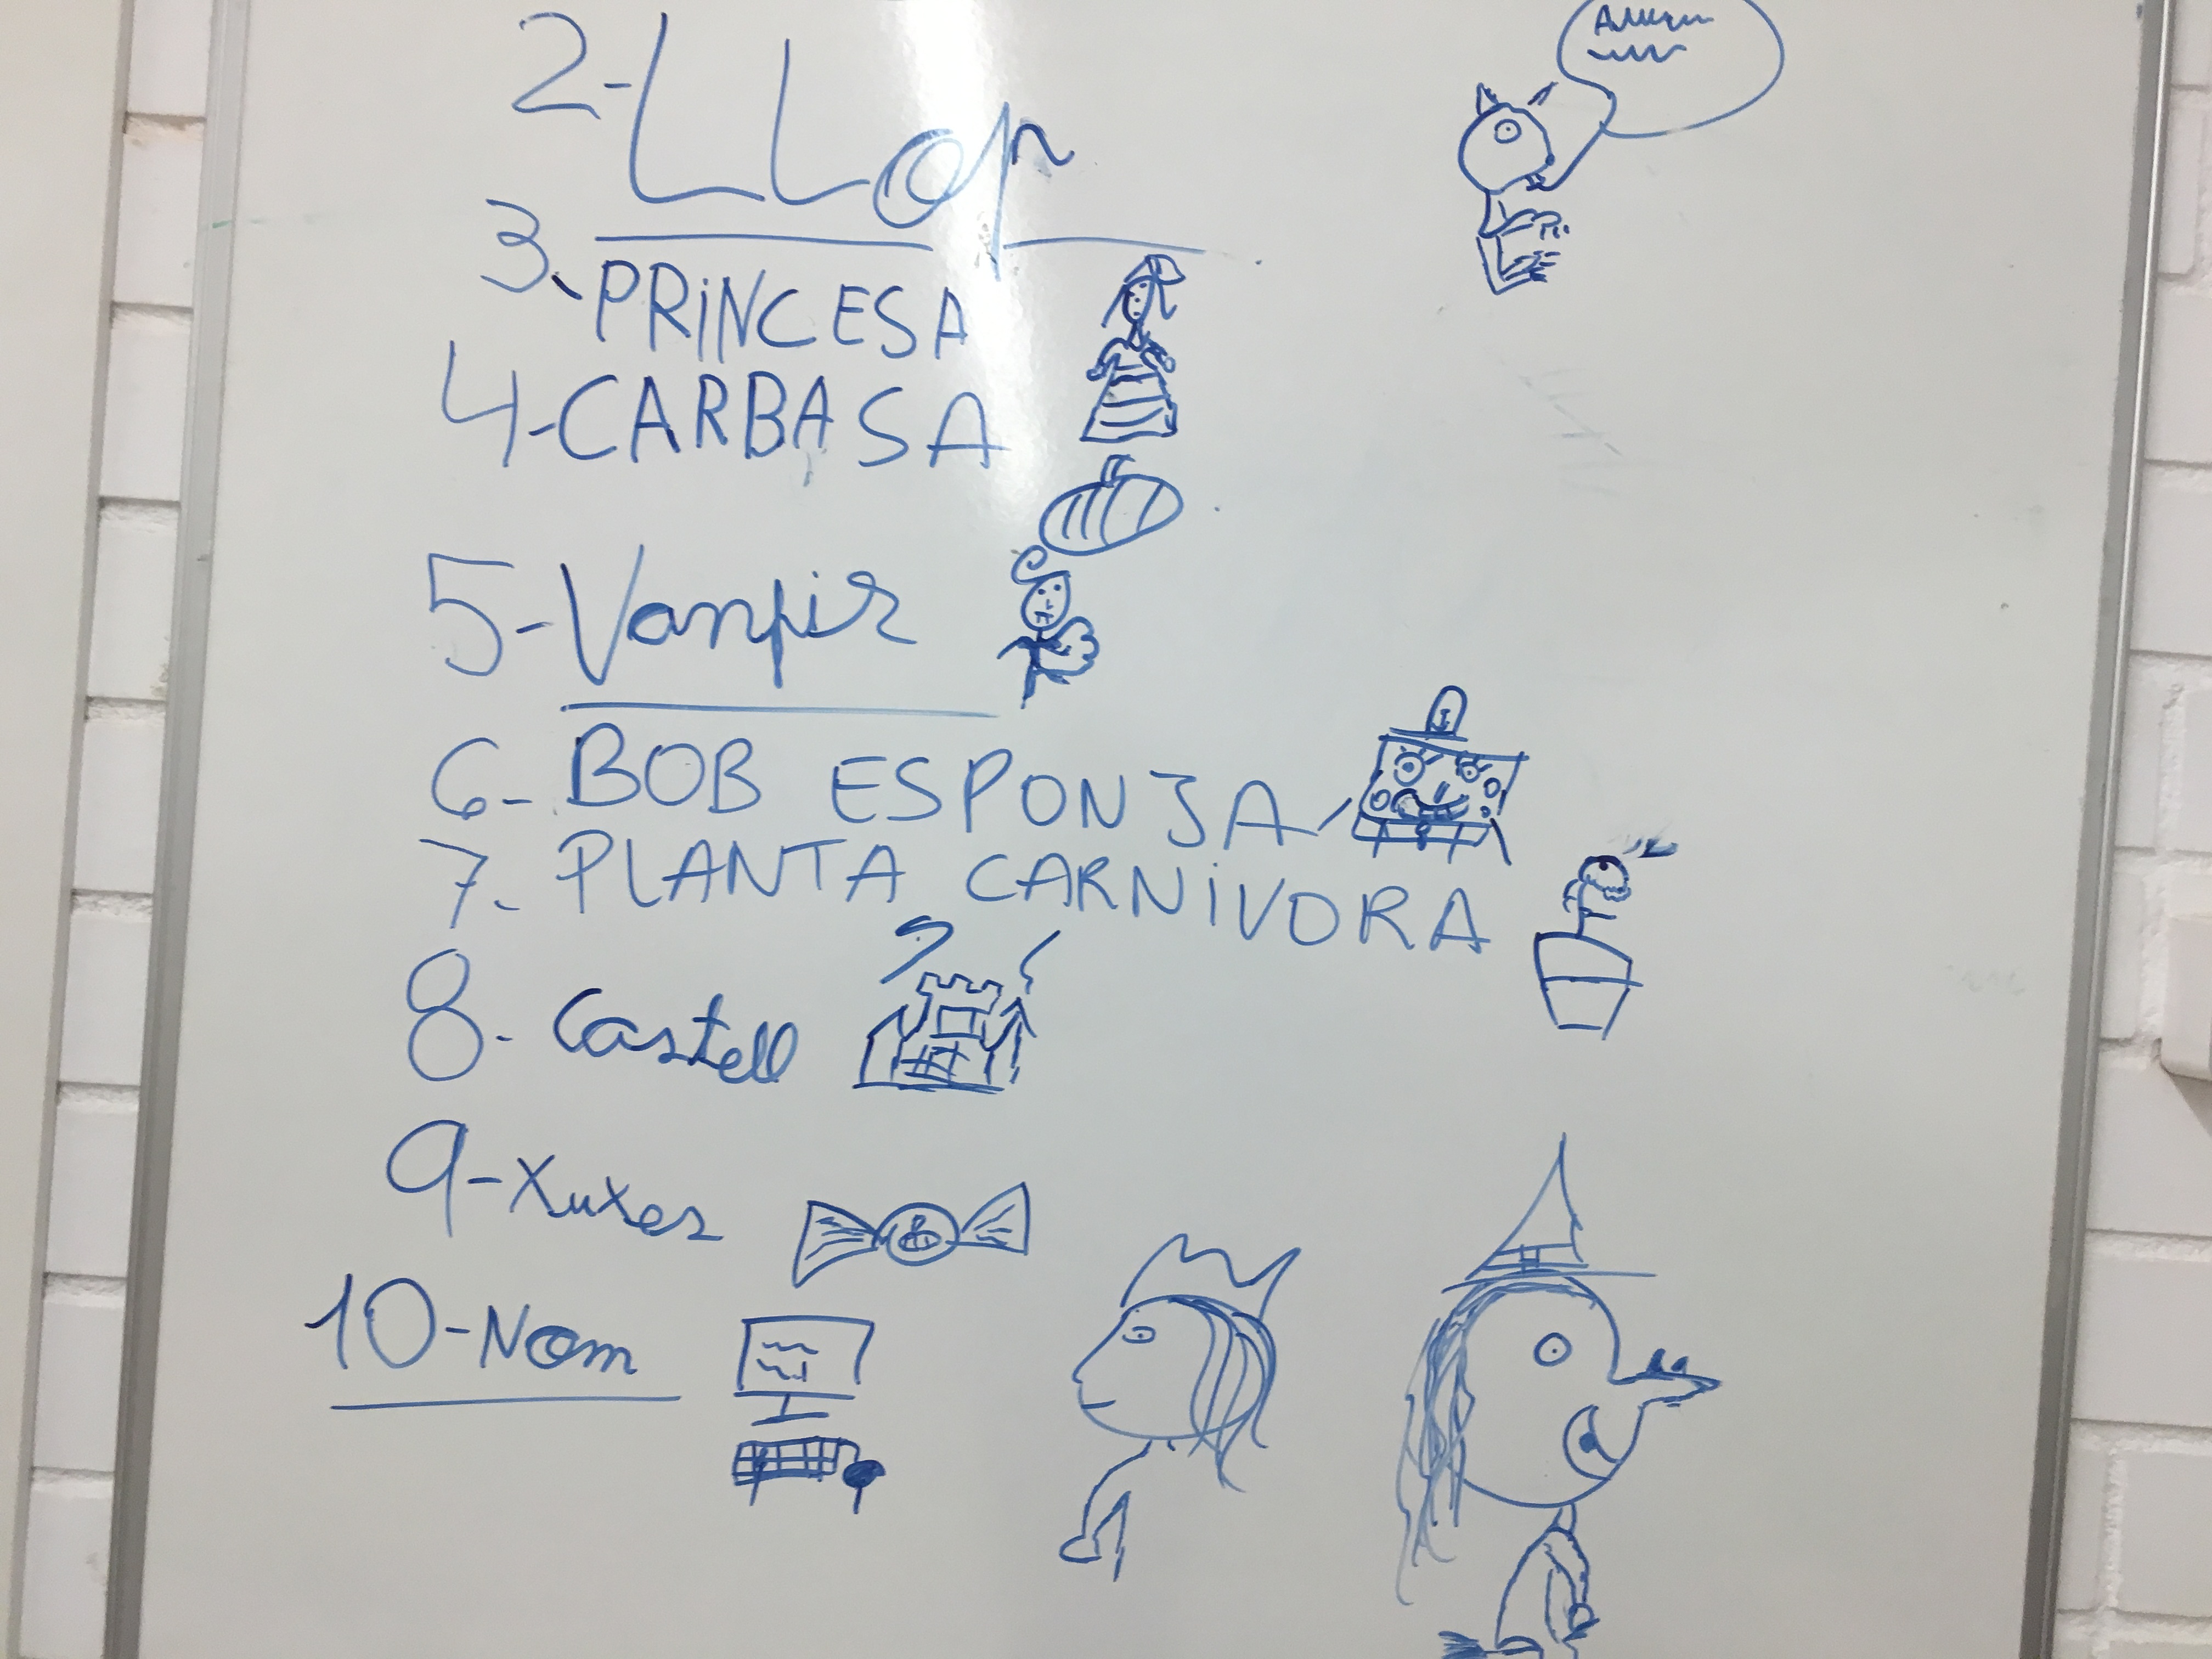 2-LLop
3. PRiNCESA
4-CARBASA
5-Vanpir
6- BOB ESPONJA
7- PLANTA CARNiVORA
8- Castell
9-Xuxes
10-Nom